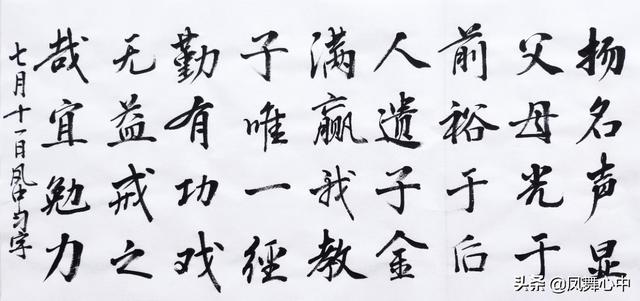 扬名声显
父母光于
前裕于后
人遗子金
满赢我教
子唯一經
勤有功戏
无益戒之
哉宜勉力
七月十一日中字
头条 @凤舞心中